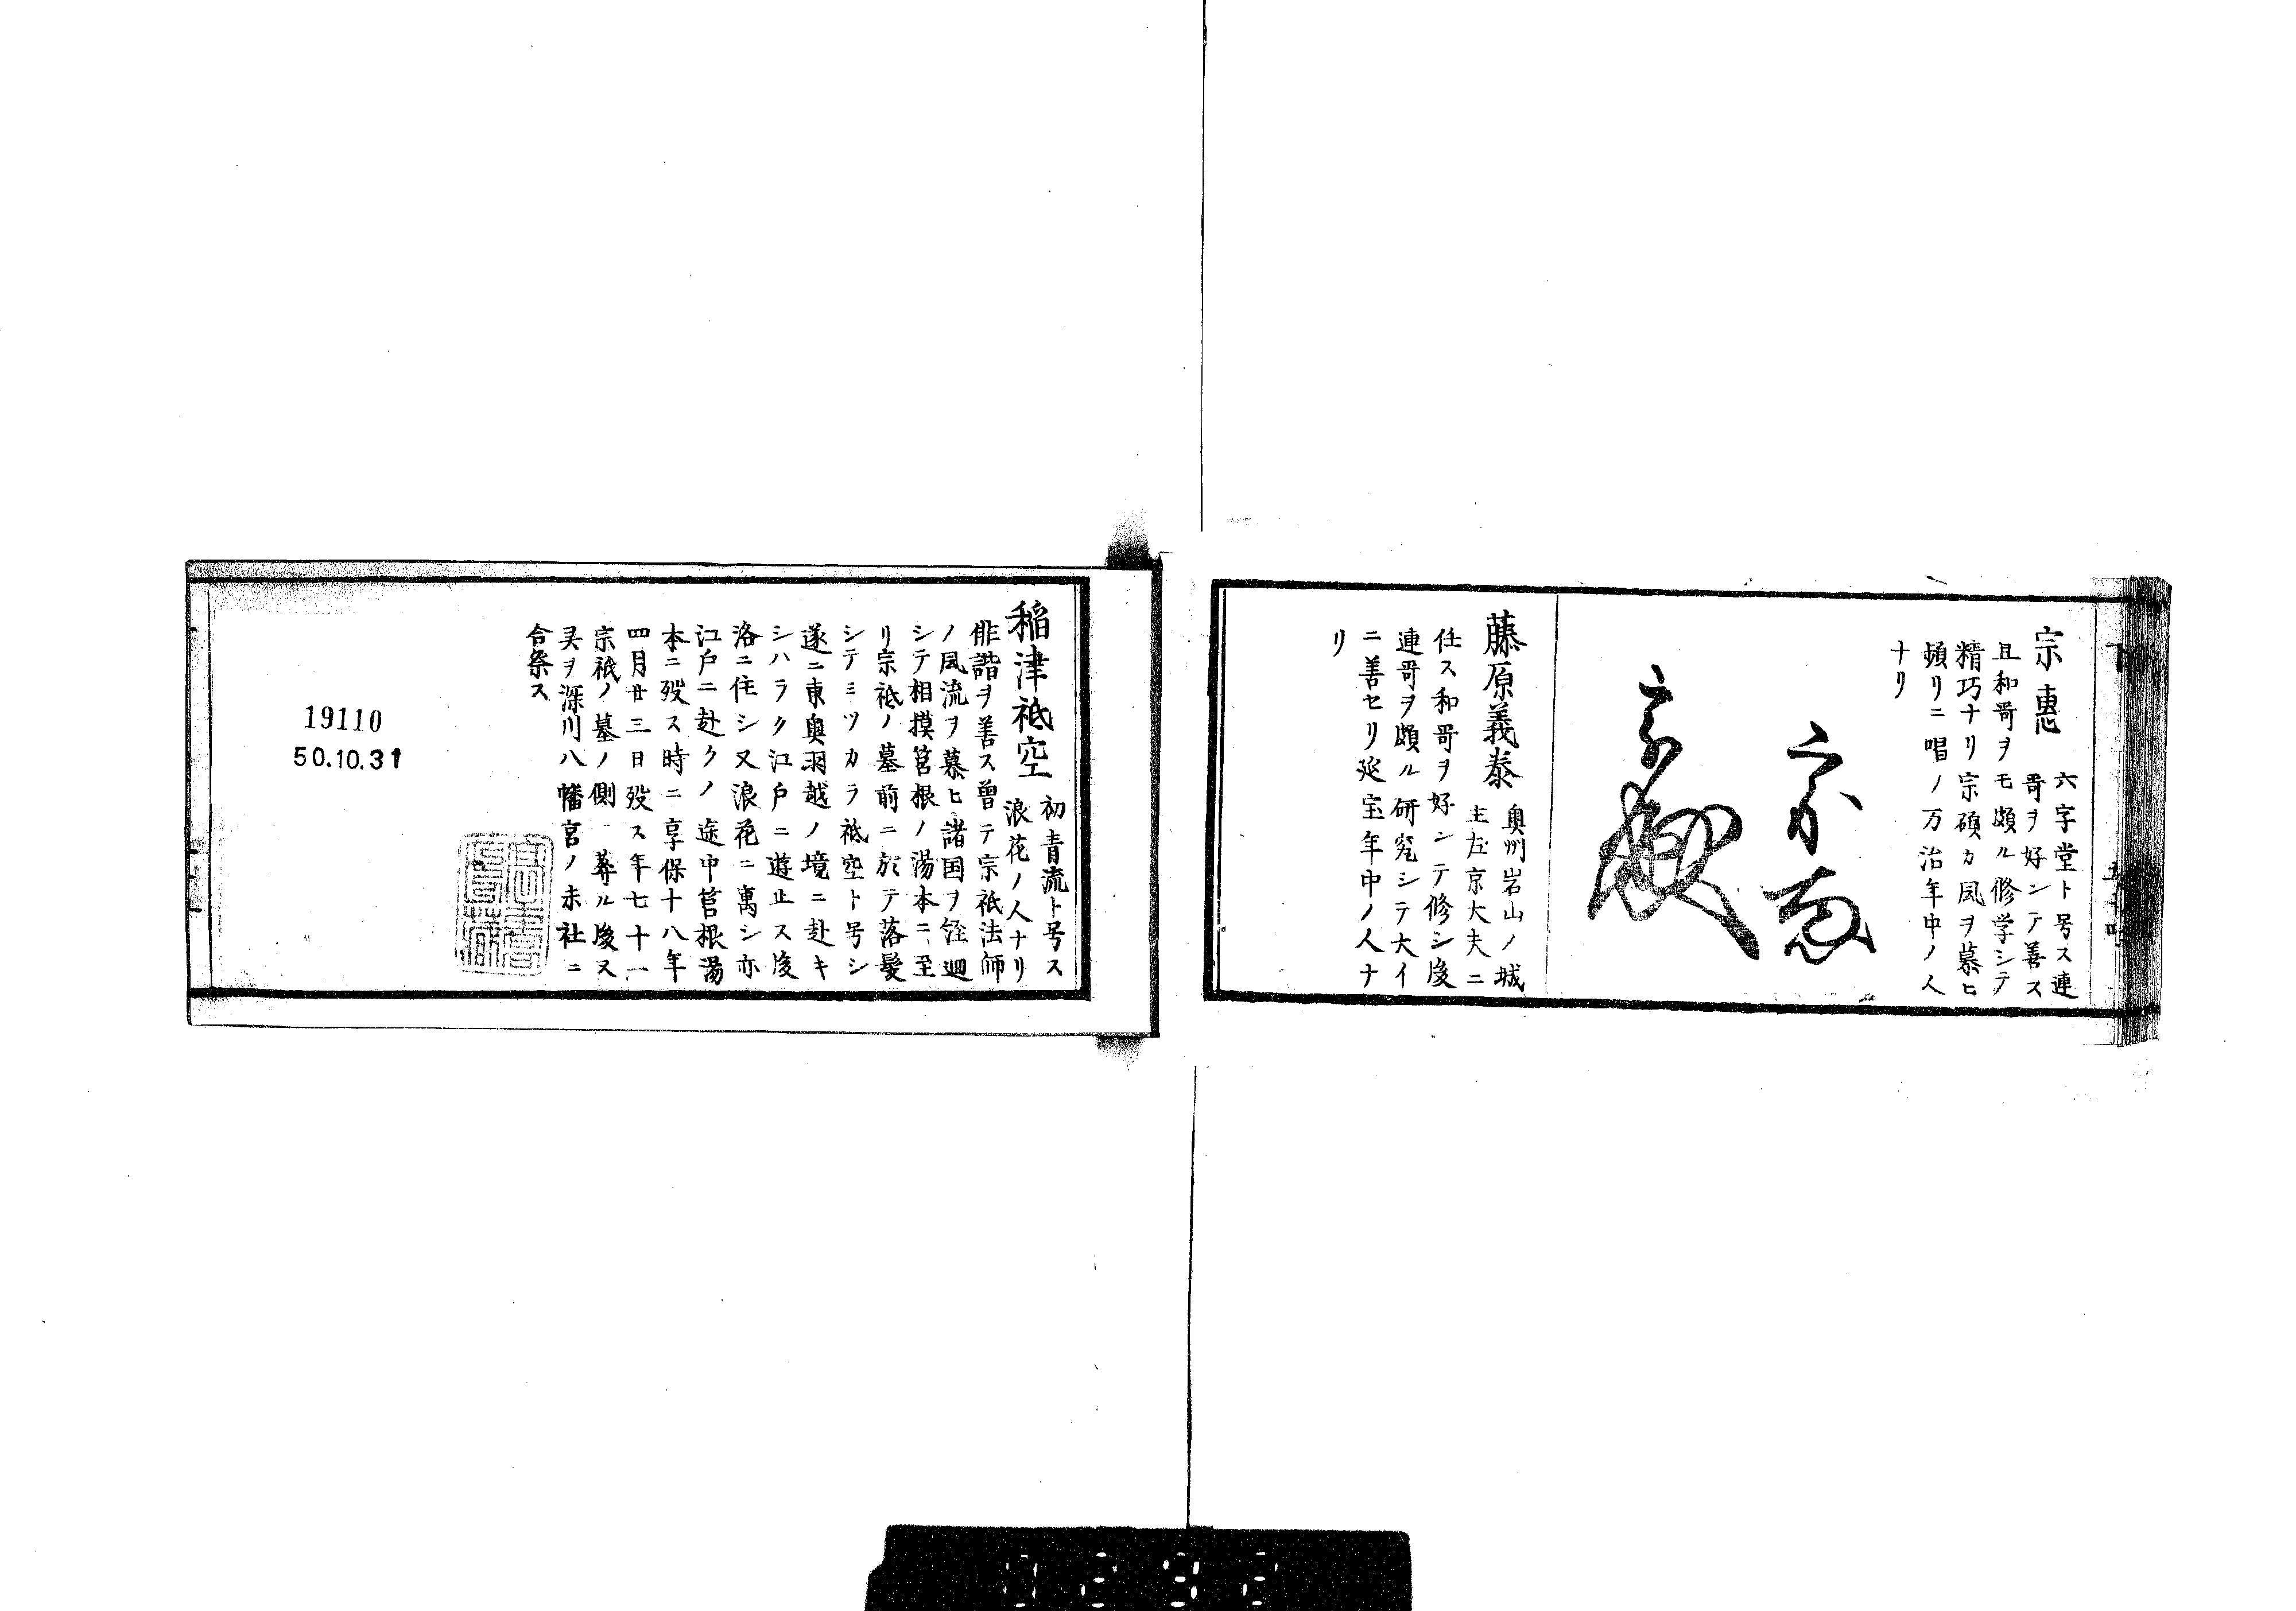 宗惠
六字堂ト号ス連
哥ヲ好ンテ善ス
且和哥ヲモ頗ル修学シテ
精巧ナリ宗碩カ風ヲ慕ヒ
頻リニ唱ノ万治年中ノ人
ナリ
藤原義泰
奥州岩山ノ城
主左京大夫ニ
任ス和哥ヲ好ンテ修シ後
連哥ヲ頗ル研究シテ大イ
ニ善セリ延宝年中ノ人ナ
リ
稲津祇空
初青流ト号ス
浪花ノ人ナリ
俳諧ヲ善ス曽テ宗祇法師
ノ風流ヲ慕ヒ諸国ヲ経廻
シテ相摸筥根ノ湯本ニ至
リ宗祇ノ墓前ニ於テ落髪
シテミツカラ祇空ト号シ
遂ニ東奥羽越ノ境ニ赴キ
シハラク江戸ニ遊止ス後
洛ニ住シ又浪花ニ寓シ亦
江戸ニ赴クノ途中筥根湯
本ニ歿ス時ニ享保十八年
四月廿三日歿ス年七十一
宗祇ノ墓ノ側葬ル後又
灵ヲ深川八幡宮ノ末社ニ
合祭ス
19110
50.10.31